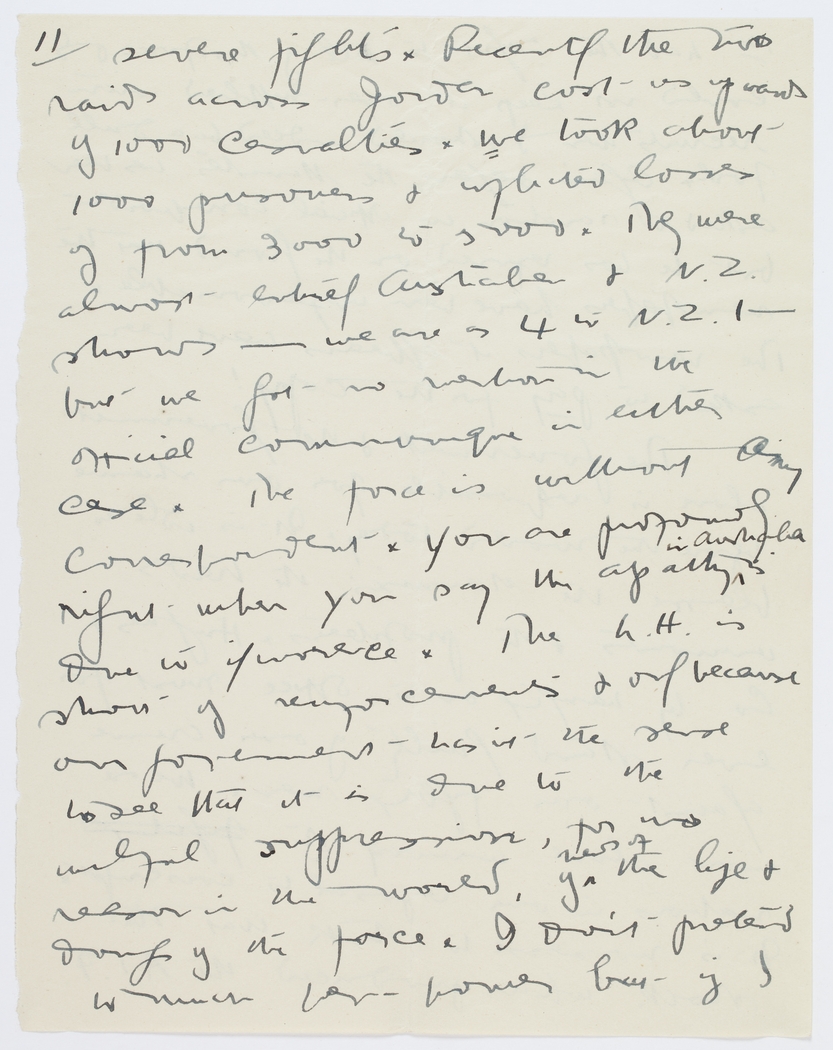 11 severe fights x Recently the two
raids across Jordan cost us upwards
of 1000 casualties x we took about
1000 prisoners & inflicted losses
of from 3000 to 5000 x They were
almost entirely Australian & N.Z.
shows — we are as 4 to N.Z. 1 —
but we got no mention in the
official communique in either
case x The force is without any
correspondent x You are profoundly
right when you say the apathy in Australia is
due to ignorance x The L.H. is
short of reinforcements & only because
our government has not the sense
to see that it is due to the
wilful suppression, for no
reason in the world, of news of the life &
doings of the force x I don't pretend
to much pen-power but if I